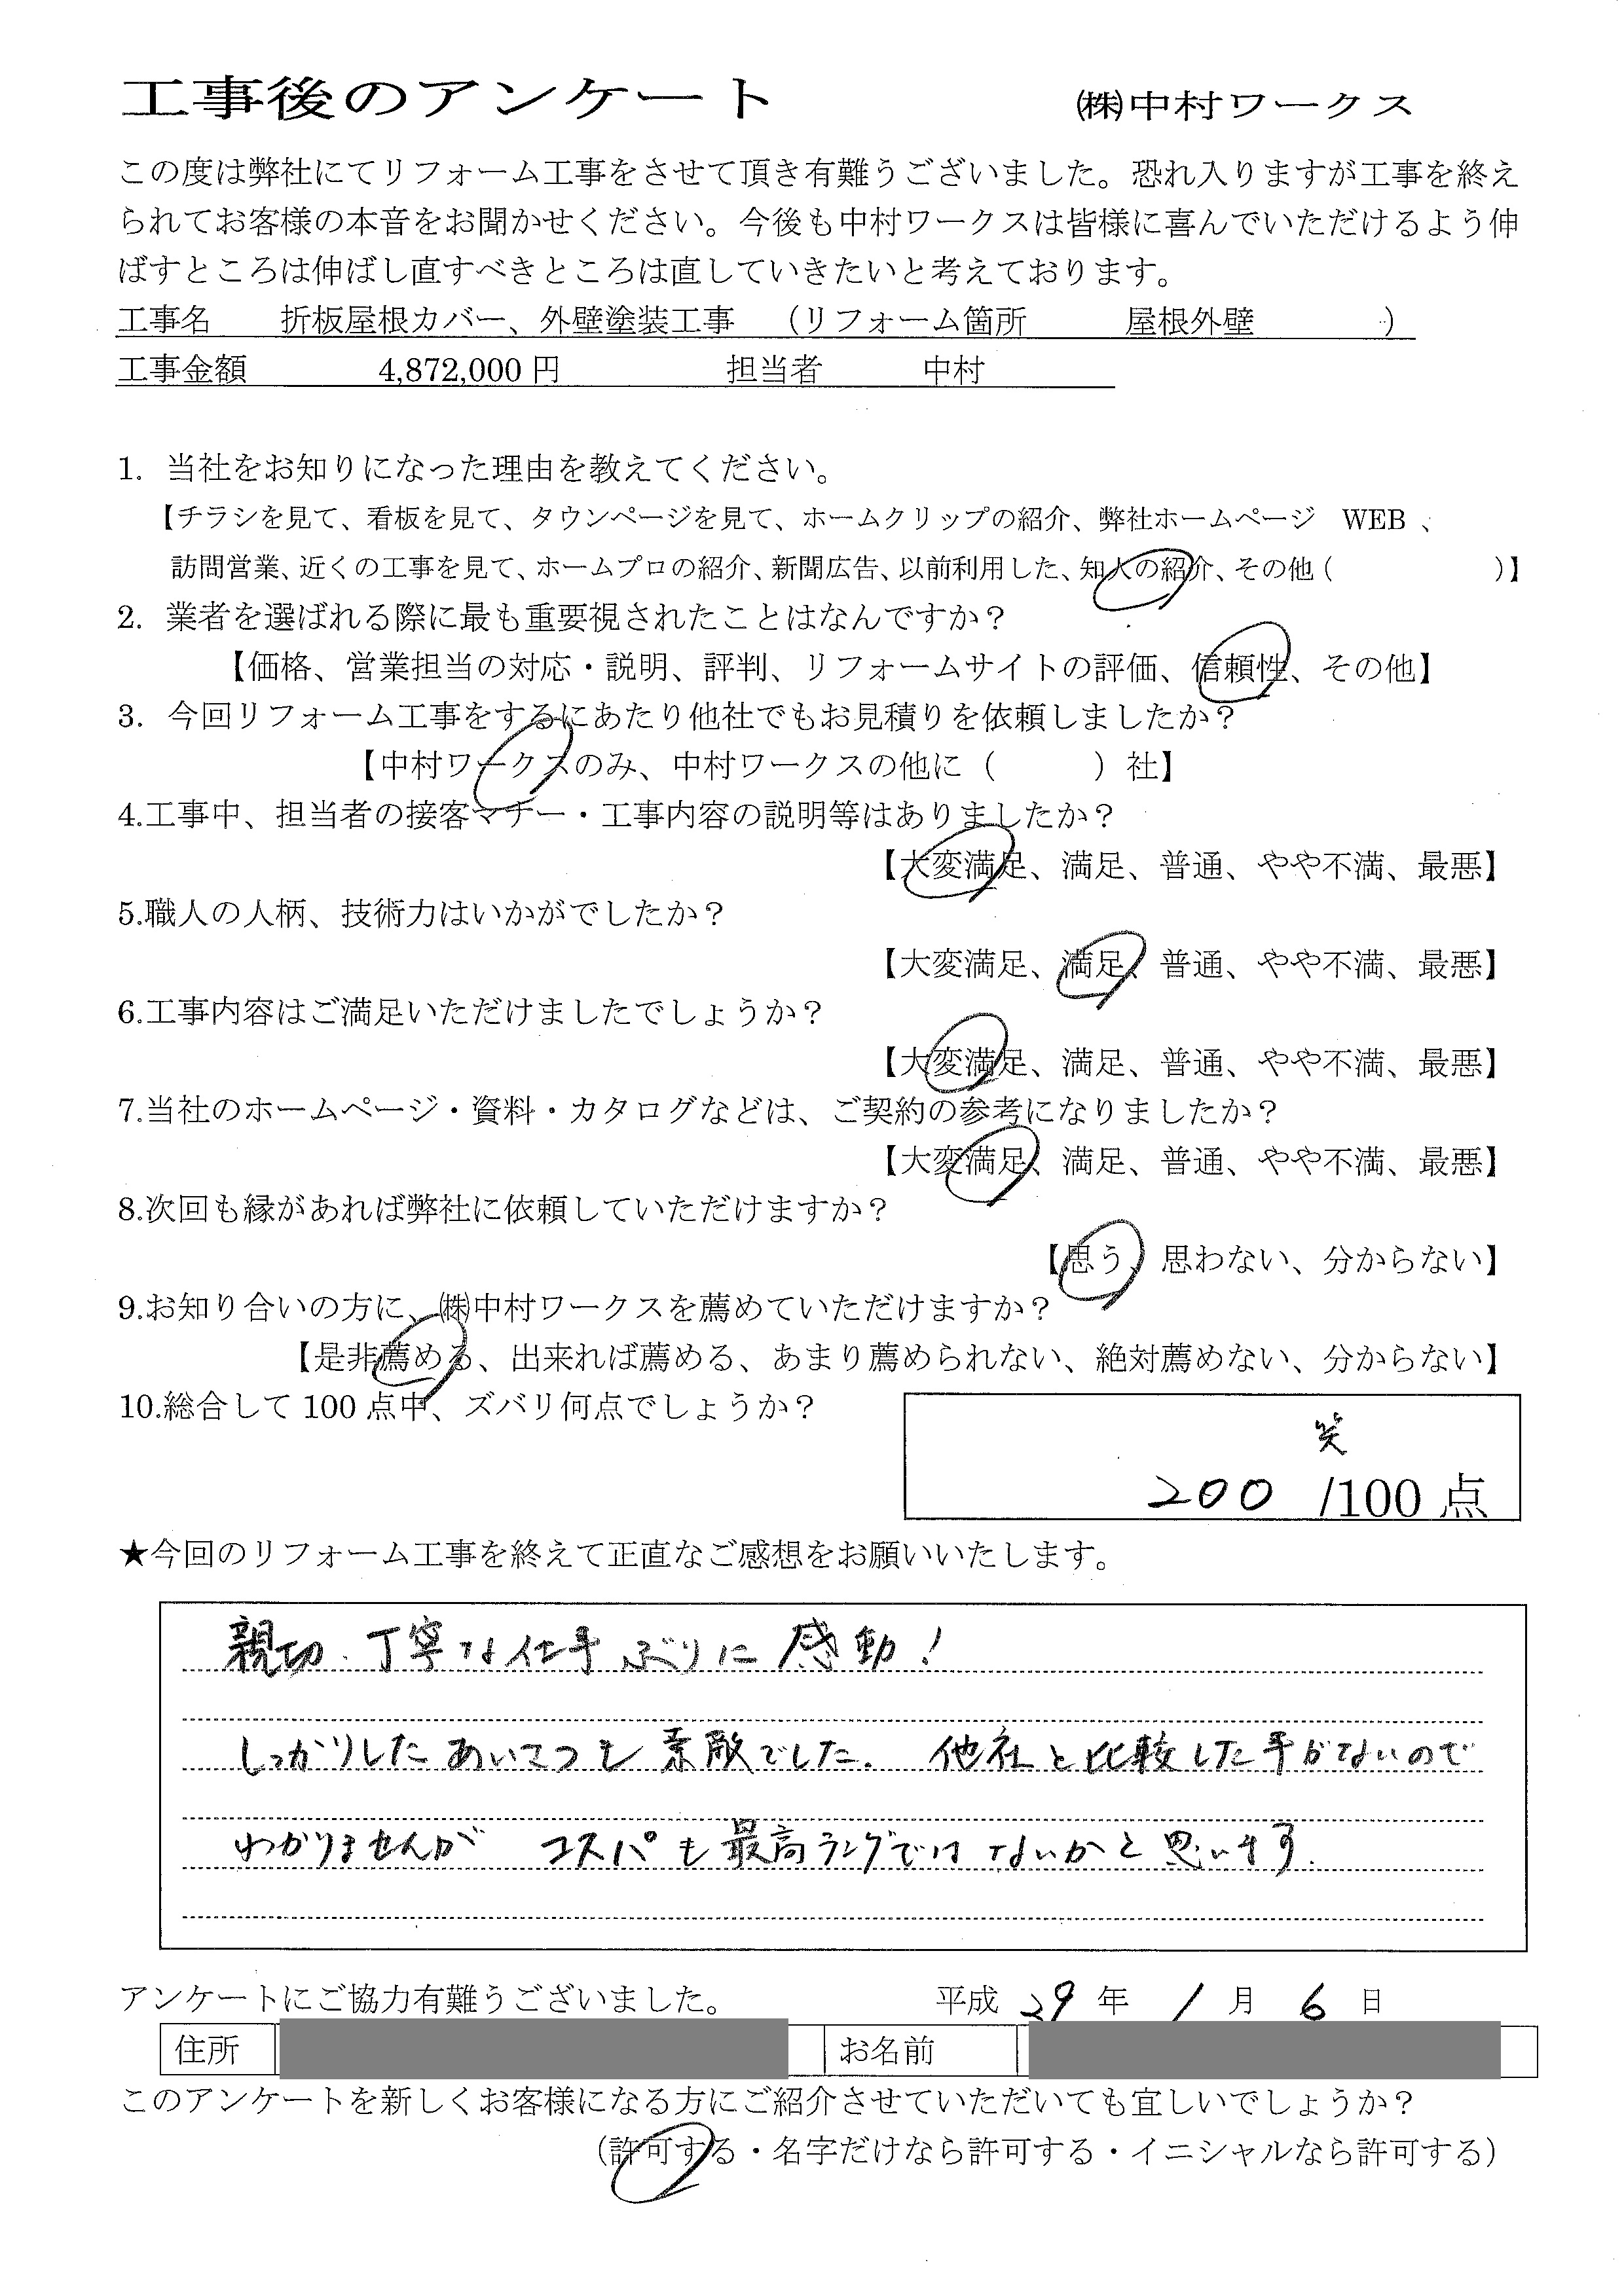 工事後のアンケート ㈱中村ワークス
この度は弊社にてリフォーム工事をさせて頂き有難うございました。恐れ入りますが工事を終え
られてお客様の本音をお聞かせください。今後も中村ワークスは皆様に喜んでいただけるよう伸
ばすところは伸ばし直すべきところは直していきたいと考えております。
工事名 折板屋根カバー、外壁塗装工事 （リフォーム箇所 屋根外壁 ）
工事金額 4,872,000 円 担当者 中村
1. 当社をお知りになった理由を教えてください。
【チラシを見て、看板を見て、タウンページを見て、ホームクリップの紹介、弊社ホームページ WEB 、
訪問営業、近くの工事を見て、ホームプロの紹介、新聞広告、以前利用した、知人の紹介、その他（ ）】
2. 業者を選ばれる際に最も重要視されたことはなんですか？
【価格、営業担当の対応・説明、評判、リフォームサイトの評価、信頼性、その他】
3. 今回リフォーム工事をするにあたり他社でもお見積りを依頼しましたか？
【中村ワークスのみ、中村ワークスの他に（ ）社】
4.工事中、担当者の接客マナー・工事内容の説明等はありましたか？
【大変満足、満足、普通、やや不満、最悪】
5.職人の人柄、技術力はいかがでしたか？
【大変満足、満足、普通、やや不満、最悪】
6.工事内容はご満足いただけましたでしょうか？
【大変満足、満足、普通、やや不満、最悪】
7.当社のホームページ・資料・カタログなどは、ご契約の参考になりましたか？
【大変満足、満足、普通、やや不満、最悪】
8.次回も縁があれば弊社に依頼していただけますか？
【思う、思わない、分からない】
9.お知り合いの方に、㈱中村ワークスを薦めていただけますか？
【是非薦める、出来れば薦める、あまり薦められない、絶対薦めない、分からない】
10.総合して 100 点中、ズバリ何点でしょうか？
笑
200 /100 点
★今回のリフォーム工事を終えて正直なご感想をお願いいたします。
親切、丁寧な仕事ぶりに感動！
しっかりしたあいさつも素敵でした。 他社と比較した事がないので
わかりませんが コスパも最高ランクではないかと思います。
アンケートにご協力有難うございました。 平成 29 年 1 月 6 日
住所 お名前
このアンケートを新しくお客様になる方にご紹介させていただいても宜しいでしょうか？
（許可する・名字だけなら許可する・イニシャルなら許可する）